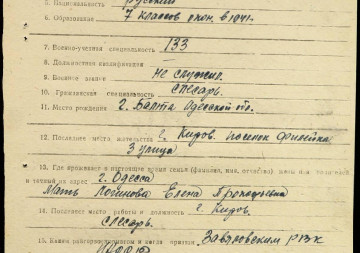 5. Национальность русский
6. Образование 7 классов окон. в 1941.
7. Военно-учетная специальность 133
8. Должностная квалификация
9. Военное звание не служил.
10. Гражданская специальность слесарь.
11. Место рождения г. Балта Одесской обл.
12. Последнее место жительства г. Киров. поселок Филейка
3 улица
13. Где проживает в настоящее время семья (фамилия, имя, отчество)
и точный их адрес г. Одесса
Мать Логинова Елена Прокофьевна
14. Последнее место работы и должность г. Киров.
слесарь.
15. Каким райгорвоенкоматом и когда призван РВК